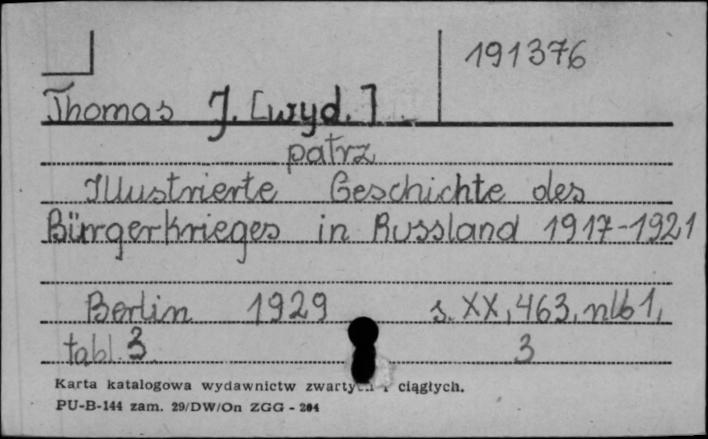 191376
Thomas J. [wyd.]
patrz
Illustrierte Geschichte des
Bürgerkrieges in Russland 1917-1921
Berlin 1929 s. XX, 463, nlb 1,
tabl. 3 3
Karta katalogowa wydawnictw zwartych i ciągłych.
PU-B-144 zam. 29/DW/On ZGG - 204